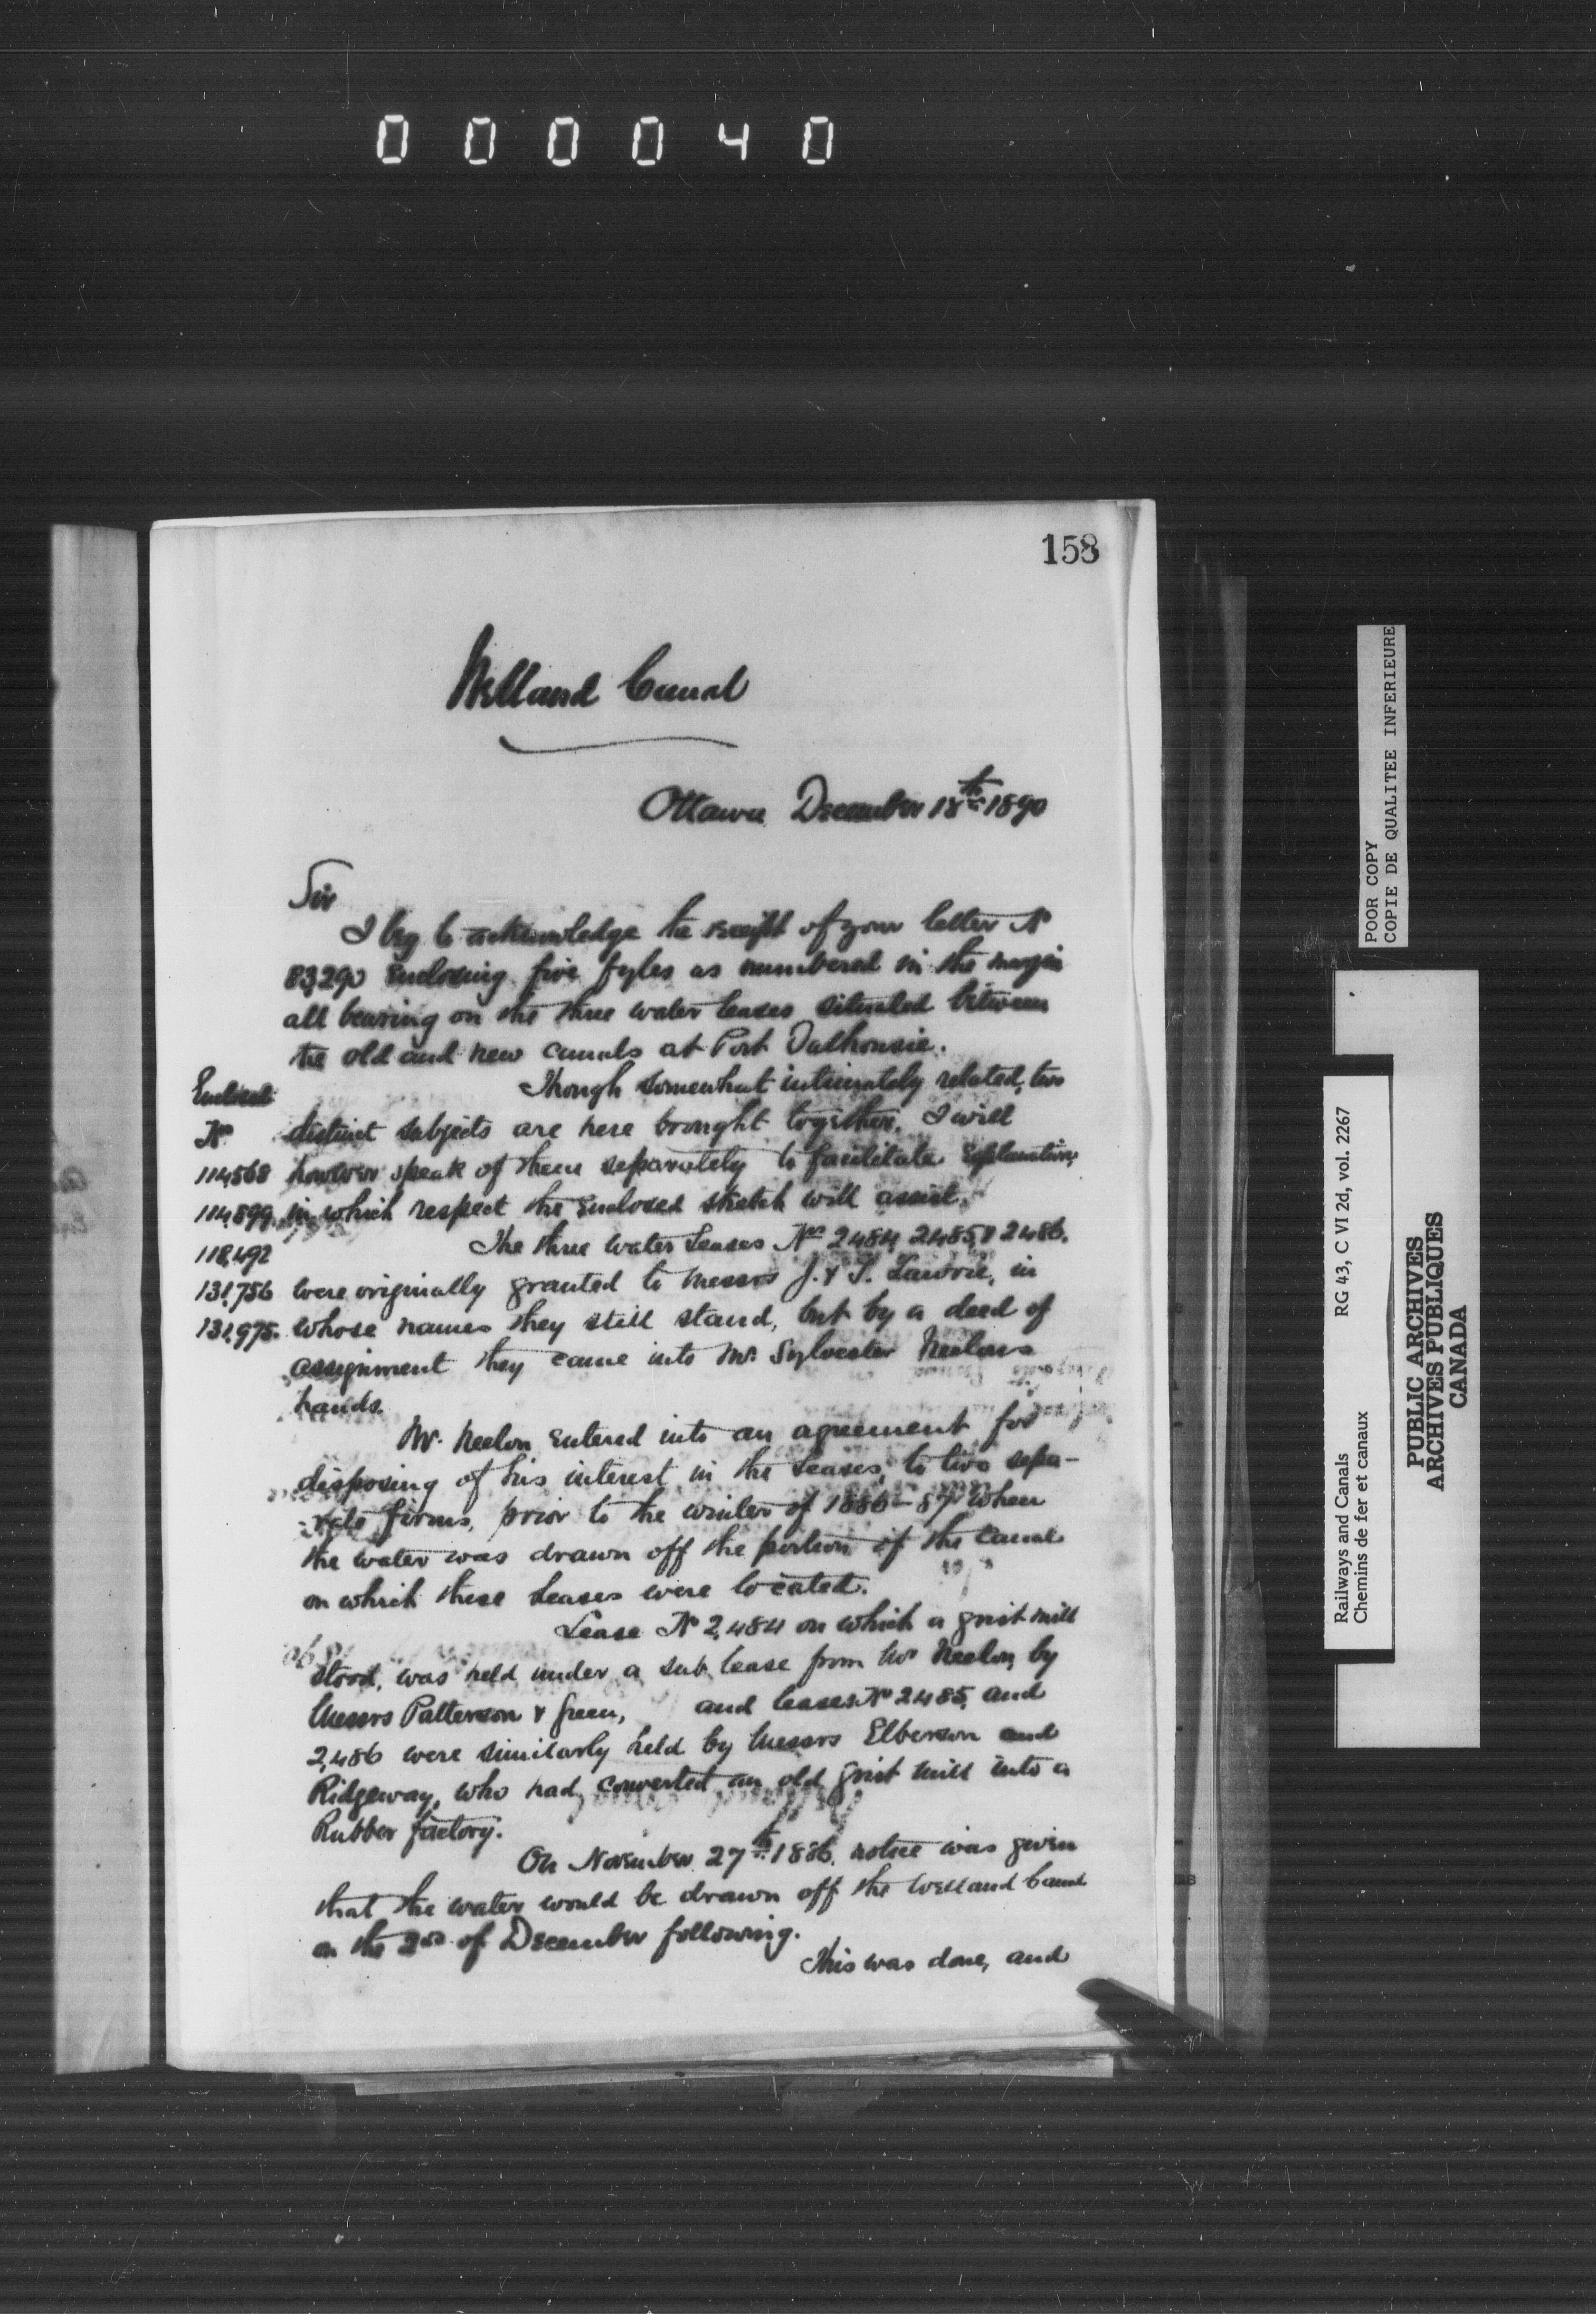 000040
158
Welland Canal
Ottawa December 18th 1890
Sir
I beg to acknowledge the receipt of your letter No
83,290 Enclosing five fyles as numbered in the margin
all bearing on the three water leases situated between
the old and new canals at Port Dalhousie.
Though somewhat intimately related, two
distinct subjects are here brought together. I will
however speak of them separately to facilitate Explanation,
in which respect the Enclosed sketch will assist.
Enclosed
No
114,568
114,899
118,492
131,756
131,975.
The three water Leases Nos 2484, 2485, & 2486.
were originally granted to Messrs J. & T. Lawrie, in
whose names they still stand, but by a deed of
assignment they came into Mr. Sylvester Neelons
hands.
Mr. Neelon Entered into an agreement for
disposing of his interest in the Leases, to two sepa-
rate firms, prior to the winter of 1886-87 when
the water was drawn off the portion of the Canal
on which these Leases were located.
Lease No 2,484 on which a grist mill
stood, was held under a sub lease from Mr Neelon, by
Messrs Patterson & Green, and leases No 2485, and
2,486 were similarly held by Messrs Elberson and
Ridgeway, who had converted an old grist mill into a
Rubber factory.
On November 27th 1886, notice was given
that the water would be drawn off the Welland Canal
on the 2nd of December following.
This was done, and
POOR COPY
COPIE DE QUALITEE INFERIEURE
Railways and Canals RG 43, C VI 2d, vol. 2267
Chemins de fer et canaux
PUBLIC ARCHIVES
ARCHIVES PUBLIQUES
CANADA